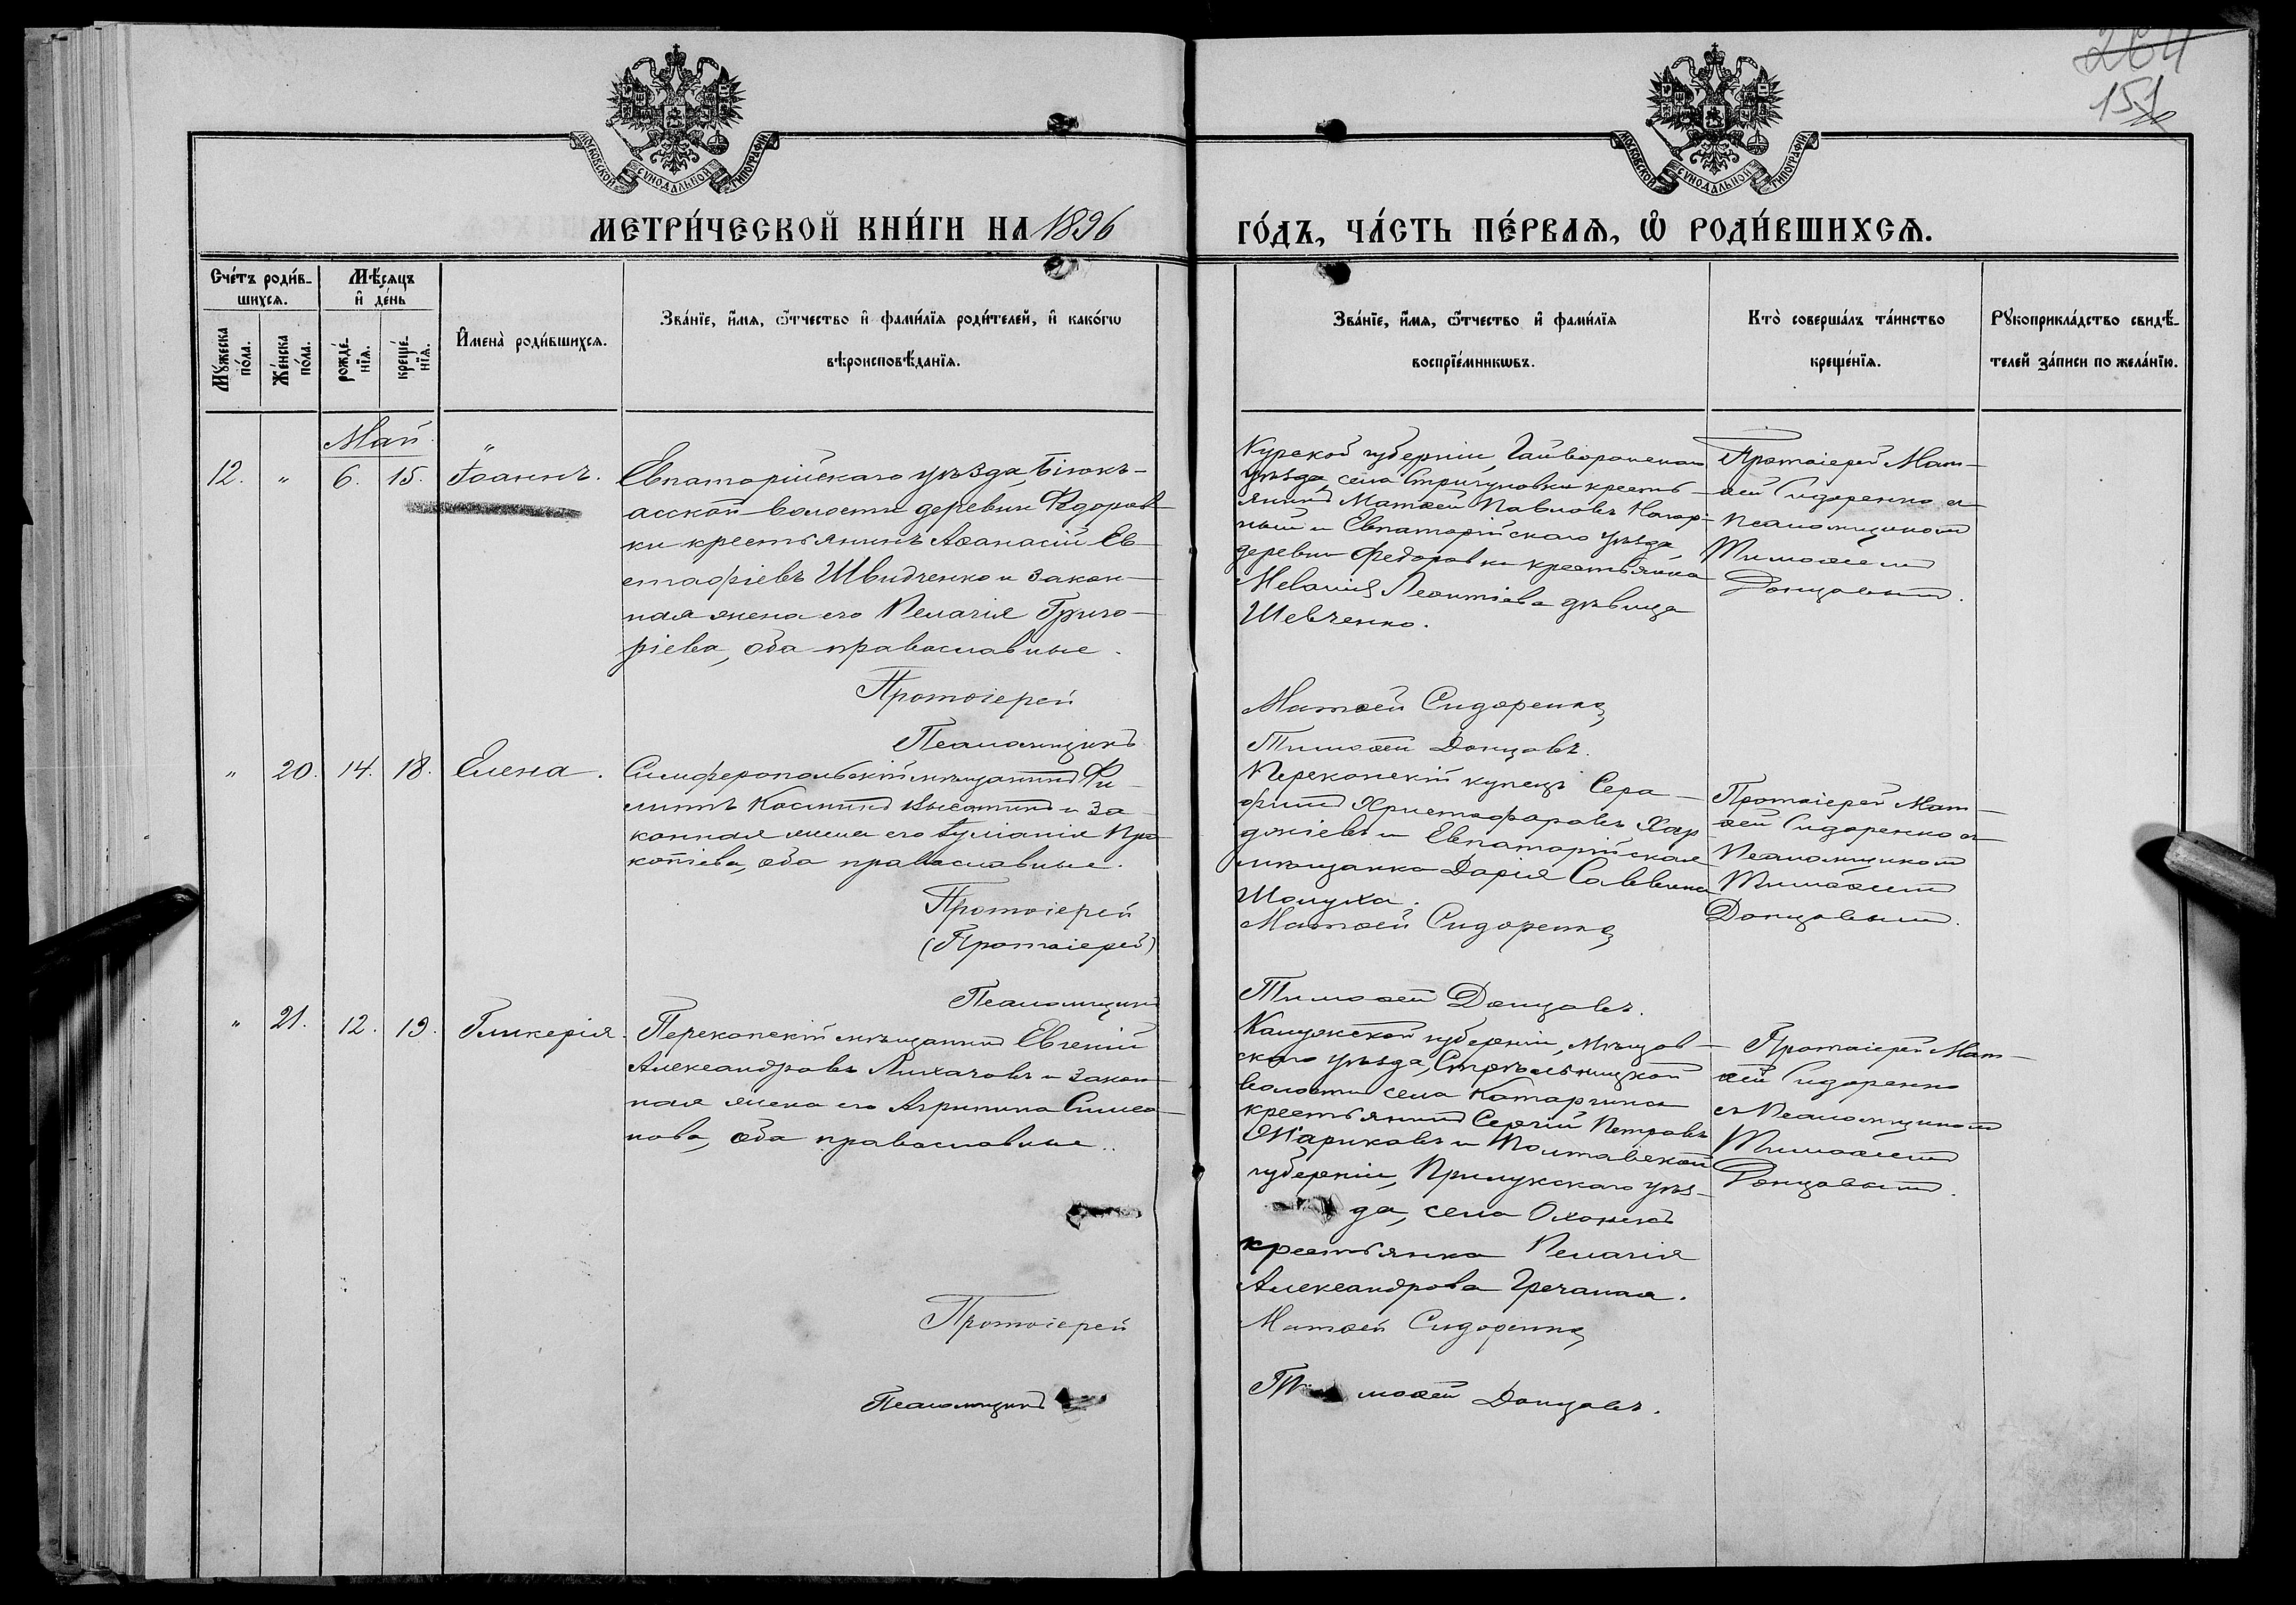 264
151
МОСКОВСКОЙ СѴНОДАЛЬНОЙ ТИПОГРАФІИ
МОСКОВСКОЙ СѴНОДАЛЬНОЙ ТИПОГРАФІИ
МЕТРИ́ЧЕСКОЙ КНИ́ГИ НА 1896
ГО́ДЪ, ЧА́СТЬ ПЕ́РВАѦ, Ѡ҆ РОДИ́ВШИХСѦ.
Сче́тъ роди́в-
шихсѧ.
Мꙋ́жеска по́ла.
Же́нска по́ла.
Мѣ́сѧцъ
и҆ де́нь
рожде́-нїѧ.
креще́-нїѧ.
И҆мена̀ роди́вшихсѧ.
Зва́нїе, и҆́мѧ, ѻ҆́тчество и҆ фами́лїѧ роди́телей, и҆ како́гѡ
вѣроисповѣ́данїѧ.
Зва́нїе, и҆́мѧ, ѻ҆́тчество и҆ фами́лїѧ
воспрїе́мникѡвъ.
Кто̀ соверша́лъ та́инство
креще́нїѧ.
Рꙋкоприкла́дство свидѣ́-
телей за́писи по жела́нїю.
Май
12. " 6. 15. Іоаннъ.
Евпаторійскаго уѣзда, Біюкъ-
асской волости деревни Ѳедоров-
ки крестьянинъ Аѳанасій Ев-
стафіевъ Швидченко и закон-
ная жена его Пелагія Григо-
ріева, оба православные.
Курской губерніи, Гайворонскаго
уѣзда, села Стригуновки кресть-
янинъ Матѳей Павловъ Нагор-
ный и Евпаторійскаго уѣзда,
деревни Федоровки крестьянка
Меланія Леонтіева дѣвица
Шевченко.
Протоіерей Мат-
ѳей Сидоренко съ
Псаломщикомъ
Тимоѳеемъ
Донцовымъ.
Протоіерей
Матѳей Сидоренко
Псаломщикъ
Тимоѳей Донцовъ.
" 20. 14. 18. Елена.
Симферопольскій мѣщанинъ Фи-
липпъ Косминъ Высотинъ и за-
конная жена его Іуліанія Про-
копіева, оба православные.
Перекопскій купецъ Сера-
фимъ Христофоровъ Хар-
джіевъ и Евпаторійская
мѣщанка Дарія Саввина
Шолуха.
Протоіерей Мат-
ѳей Сидоренко съ
Псаломщикомъ
Тимоѳеемъ
Донцовымъ.
Протоіерей
Матѳей Сидоренко
(Протоіерей)
Псаломщикъ
Тимоѳей Донцовъ.
" 21. 12. 19. Гликерія.
Перекопскій мѣщанинъ Евгеній
Александровъ Лихачовъ и закон-
ная жена его Агрипина Симео-
нова, оба православные.
Калужской губерніи, Мещов-
скаго уѣзда, Стрѣльницкой
волости села Катаргина
крестьянинъ Сергій Петровъ
Жариковъ и Полтавской
губерніи, Прилукскаго уѣз-
да, села Охонекъ
крестьянка Пелагія
Александрова Гречаная.
Протоіерей Мат-
ѳей Сидоренко
съ Псаломщикомъ
Тимоѳеемъ
Донцовымъ.
Протоіерей
Матѳей Сидоренко
Псаломщикъ
Тимоѳей Донцовъ.